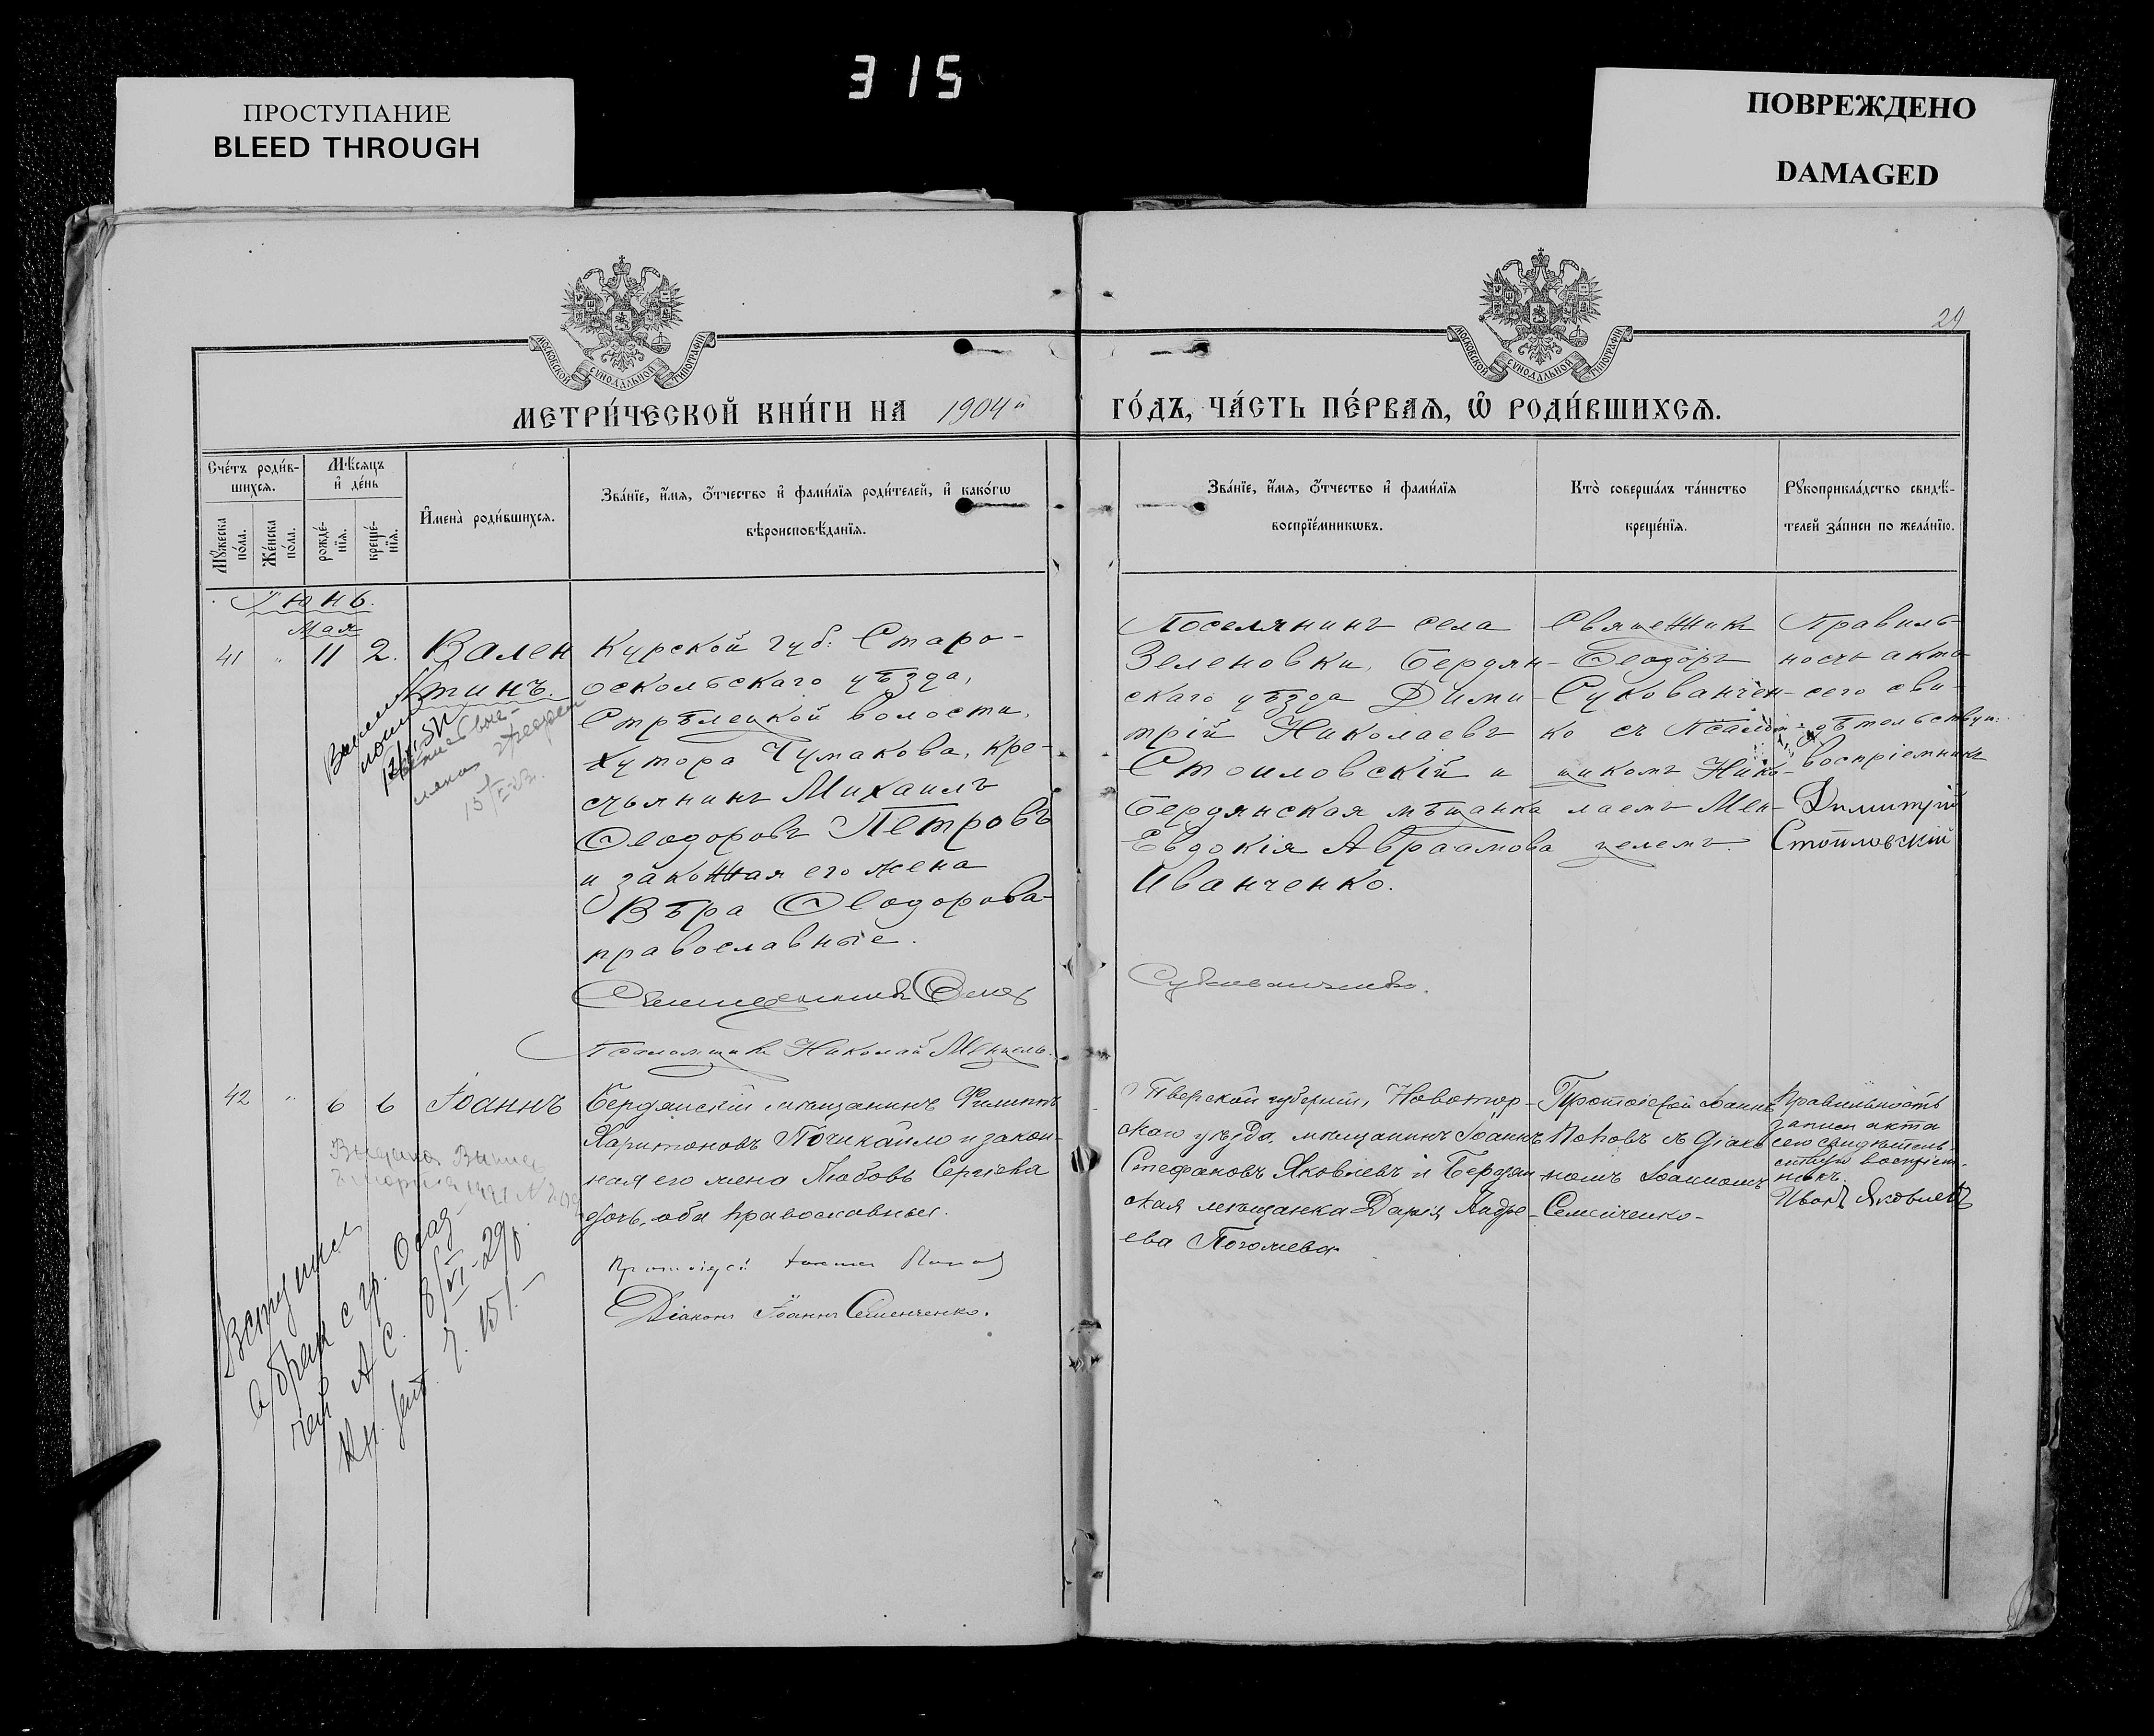 315
ПРОСТУПАНИЕ
BLEED THROUGH
ПОВРЕЖДЕНО
DAMAGED
29
МОСКОВСКОЙ СѴНОДАЛЬНОЙ ТИПОГРАФІИ
МОСКОВСКОЙ СѴНОДАЛЬНОЙ ТИПОГРАФІИ
МЕТРИ́ЧЕСКОЙ КНИ́ГИ НА 1904й
ГО́ДЪ, ЧА́СТЬ ПЕ́РВАѦ, Ѡ҆ РОДИ́ВШИХСѦ.
Сче́тъ роди́в-
шихсѧ.
Мꙋ́жеска по́ла.
Же́нска по́ла.
Мѣ́сѧцъ
и҆ де́нь
рожде́-
нїѧ.
креще́-
нїѧ.
И҆мена̀ роди́вшихсѧ.
Зва́нїе, и҆́мѧ, ѻ҆́тчество и҆ фами́лїѧ роди́телей, и҆ како́гѡ
вѣроисповѣ́данїѧ.
Зва́нїе, и҆́мѧ, ѻ҆́тчество и҆ фами́лїѧ
воспрїе́мникѡвъ.
Кто̀ соверша́лъ та́инство
креще́нїѧ.
Рꙋкоприкла́дство свидѣ́-
телей за́писи по жела́нїю.
Іюнь.
Мая
41 " 11 2.
Вален
тинъ.
Курской губ: Старо-
оскольскаго уѣзда,
Стрѣлецкой волости,
хутора Чумакова, кре-
стьянинъ Михаилъ
Ѳеодоровъ Петровъ
и законная его жена
Вѣра Ѳеодорова
православные.
Поселянинъ села
Зеленовки, Бердян-
скаго уѣзда Дими-
трій Николаевъ
Стоиловскій и
Бердянская мѣщанка
Евдокія Авраамова
Иванченко.
Священникъ
Ѳеодоръ
Сукованчен-
ко съ Псалом-
щикомъ Нико-
лаемъ Мен-
целемъ.
Правиль-
ность акта
сего сви-
дѣтельствую:
воспріемникъ
Димитрій
Стоиловскій
Священникъ Ѳеод
Сукованченко.
Псаломщикъ Николай Менцель.
42 " 6 6
Іоаннъ
Бердянскій мѣщанинъ Филиппъ
Харитоновъ Почикайло и закон-
ная его жена Любовь Сергіева
дочь, оба православные.
Протоіерей Іоаннъ Поповъ
Діаконъ Іоаннъ Семенченко.
Тверской губерніи, Новотор-
скаго уѣзда, мѣщанинъ Іоаннъ
Стефановъ Яковлевъ и Бердян
ская мѣщанка Дарія Андре-
ева Поголиева
Протоіерей Іоаннъ
Поповъ съ Діако
номъ Іоанномъ
Семенченко-
Правильность
записи акта
сего свидѣтель-
ствую воспріем-
никъ.
Иванъ Яковлевъ
Вступил
в брак с гр. Осад-
чей А. С. 8/VI-29 г.